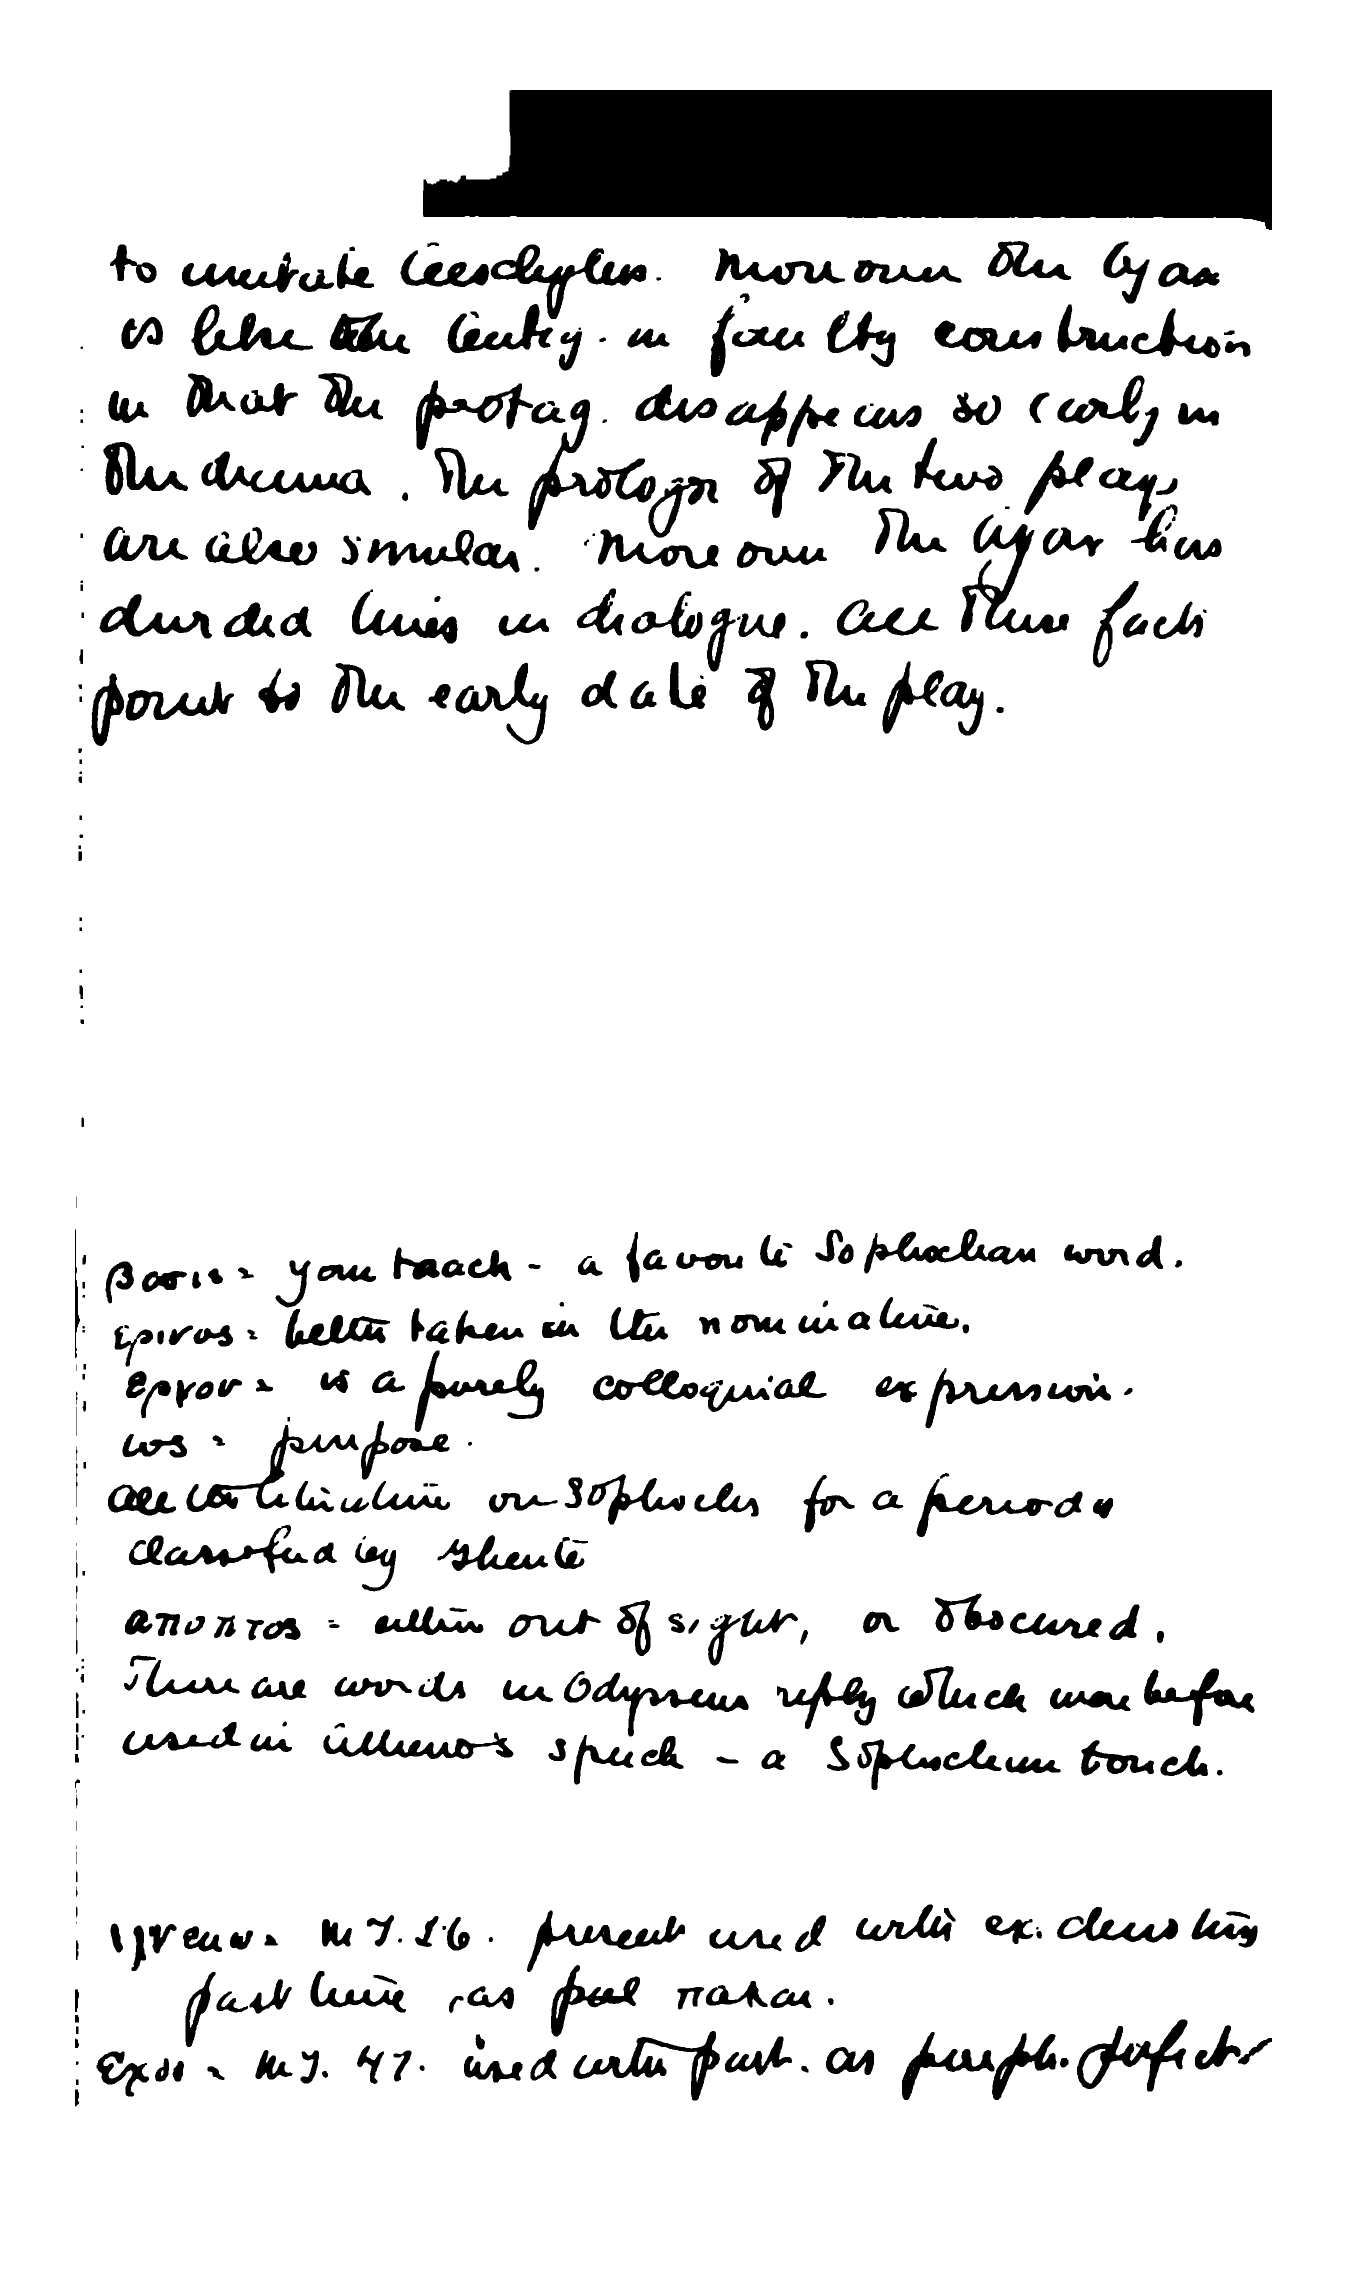 to imitate Aeschylus. Moreover the Ajax
is like the Antig. in faulty construction
in that the protag. disappears so early in
the drama. The prologoi of the two plays
are also similar. Moreover the Ajax has
divided lines in dialogue. All these facts
point to the early date of the play.
βασις = your track - a favorite Sophoclean word.
ερινος = better taken in the nominative.
εργον = is a purely colloquial expression.
ως = purpose.
All the literature on Sophocles for a period is
classified by
αποπτος = either out of sight, or obscured.
There are words in Odysseus reply which were before
used in Athena's speech - a Sophoclean touch.
in J. 36. present used with ex. denoting
past time, as παλαι.
Εχω = in J. 47. used with part. as periph. perfect.